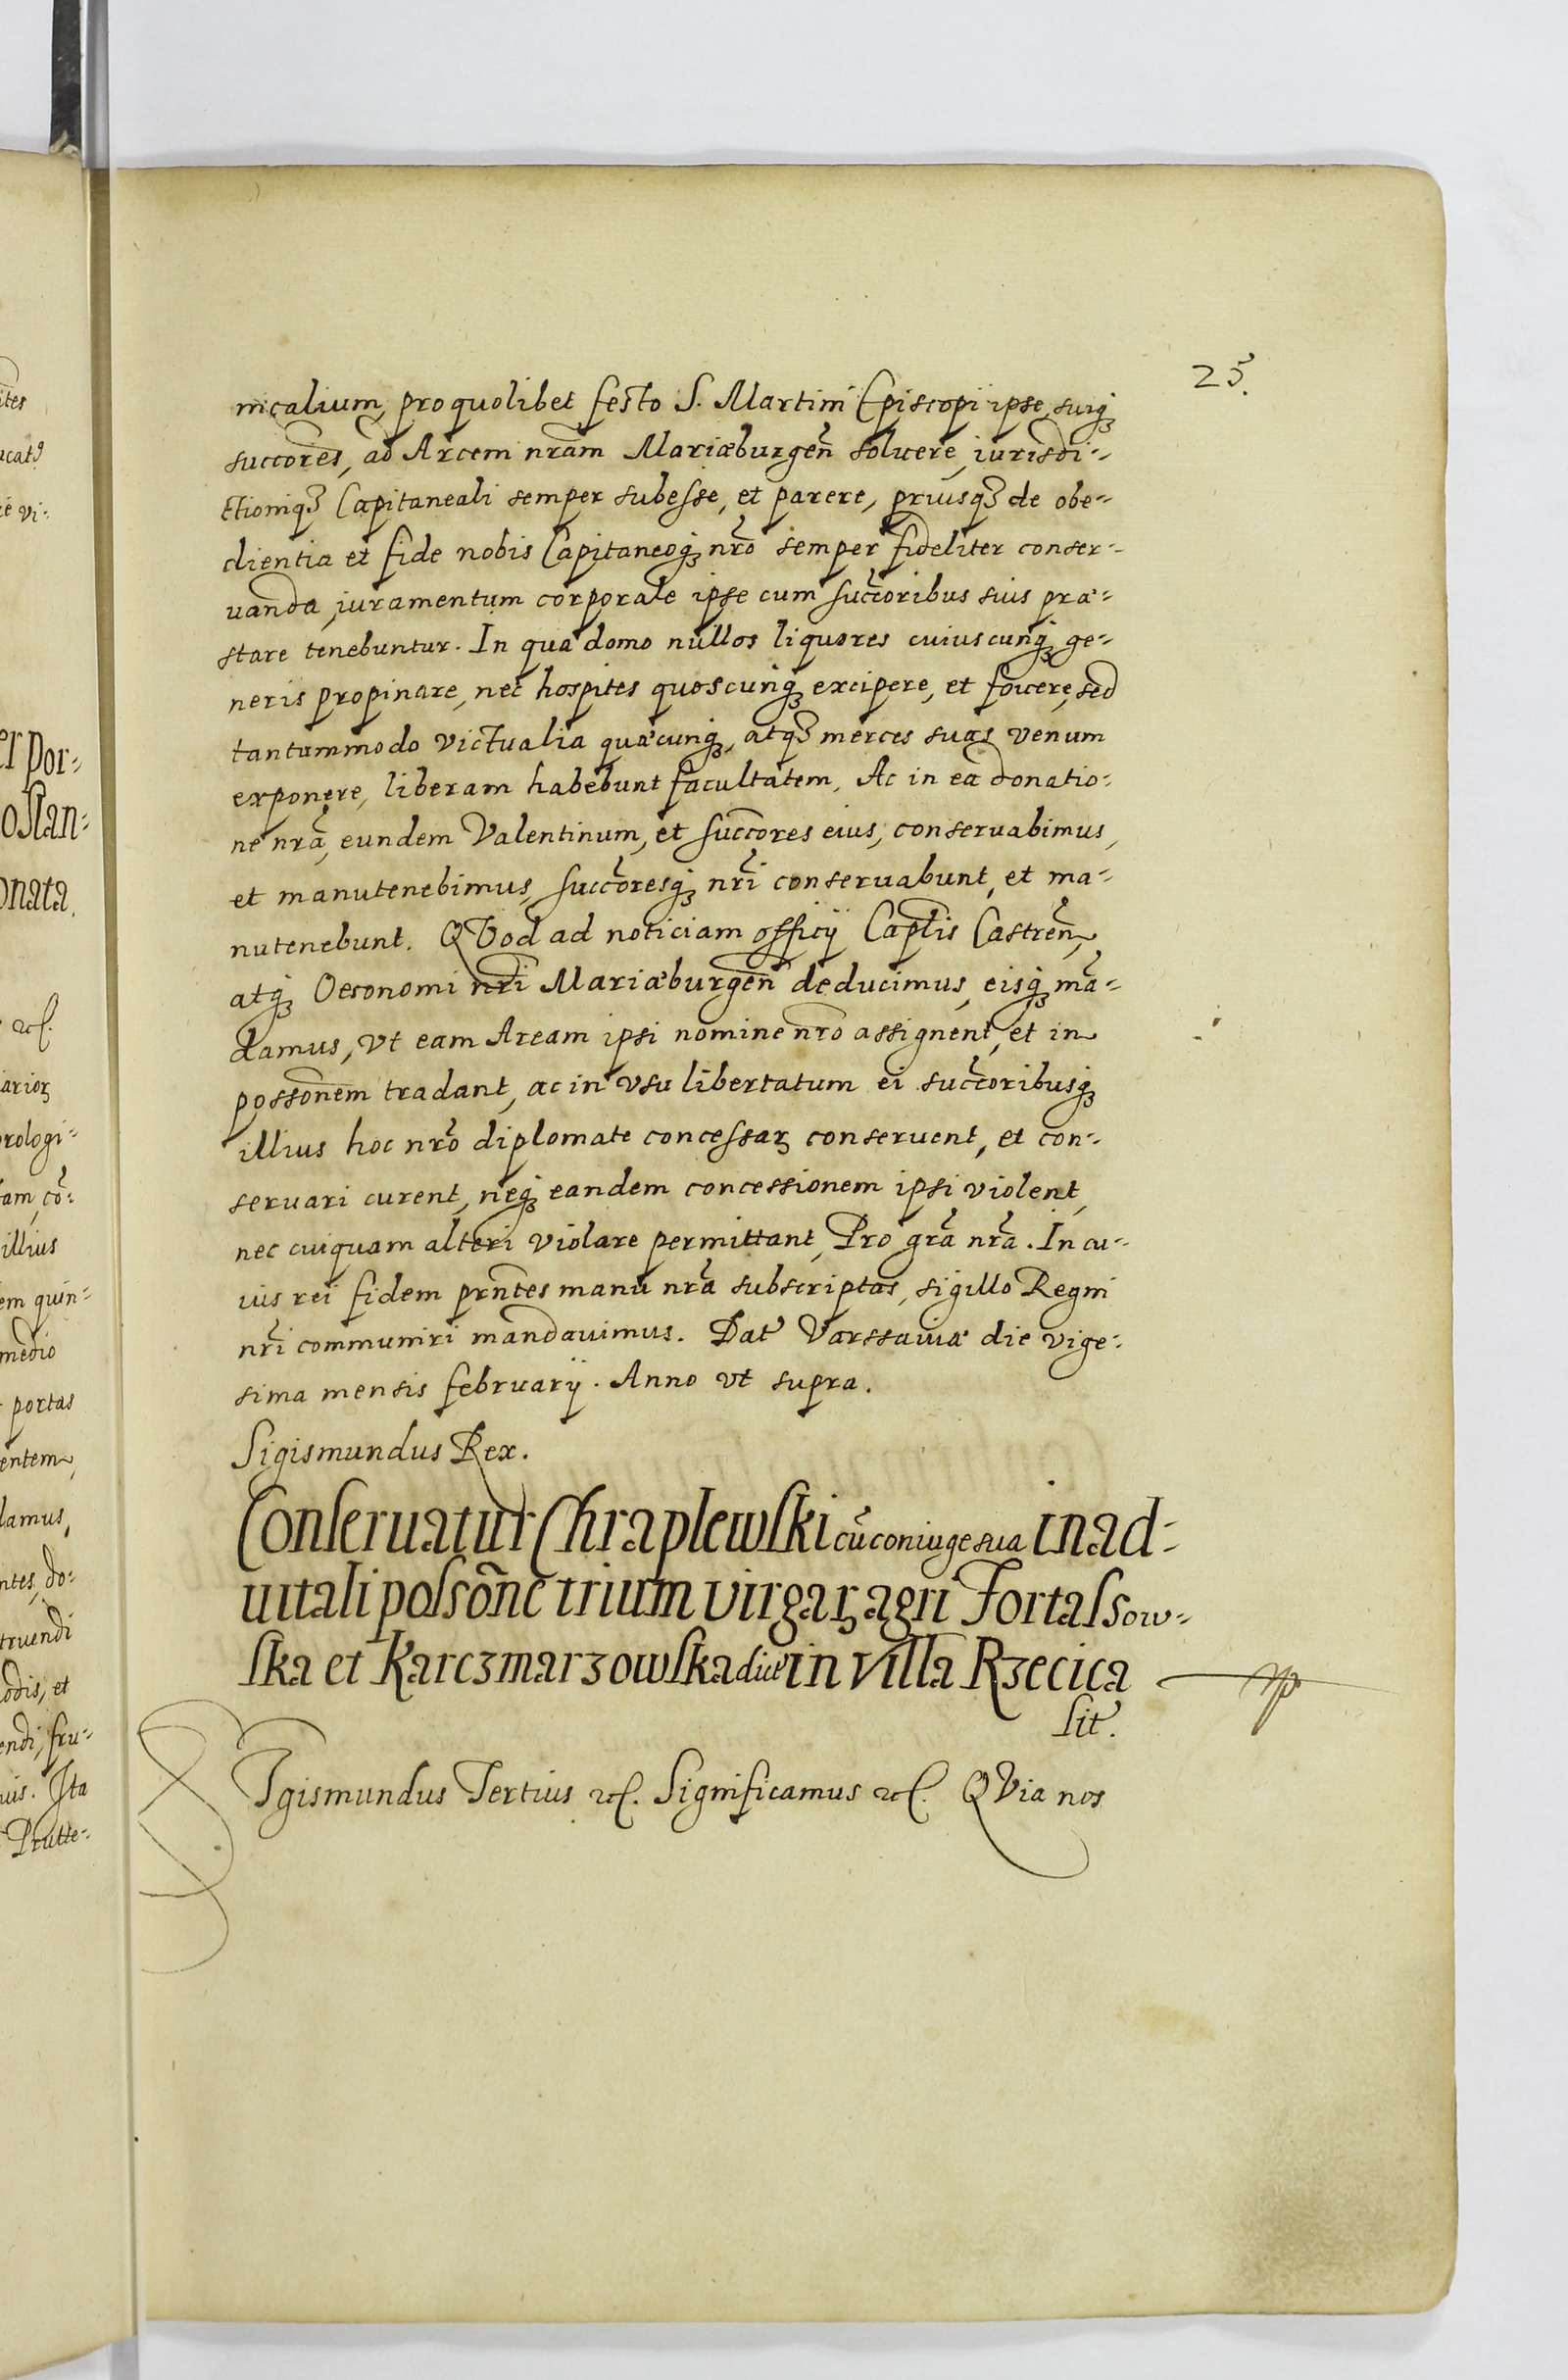 25.
nicalium, pro quolibet festo S. Martini Episcopi ipse, suiq₃
succores, ad Arcem nram Mariæburgen̄ soluere, iurisdi-
ctioniq₃ Capitaneali semper subesse, et parere, priusq₃ de obe-
dientia et fide nobis Capitaneoq₃ nrõ semper fideliter conser-
uanda, iuramentum corporale ipse cum succõribus suis præ-
stare tenebuntur. In qua domo nullos liquores cuiuscunq₃ ge-
neris propinare, nec hospites quoscunq₃ excipere, et fouere, sed
tantummodo victualia quæcunq₃, atq₃ merces suas venum
exponere, liberam habebunt facultatem, Ac in ea donatio-
ne nrã, eundem Valentinum, et succores eius, conseruabimus,
et manutenebimus, succõresq₃ nrĩ conseruabunt, et ma-
nutenebunt. QVod ad noticiam officij Captis Castren̄,
atq₃ Oeconomi nri Mariæburgen̄ deducimus, eisq₃ mã-
damus, vt eam Aream ipsi nomine nrõ assignent, et in
possonem tradant, ac in vsu libertatum ei succõribusq₃
illius hoc nrõ diplomate concessaꝝ conseruent, et con-
seruari curent, neq₃ eandem concessionem ipsi violent,
nec cuiquam alteri violare permittant, Pro grã nrã. In cu-
ius rei fidem prn̄tes manu nrã subscriptas, sigillo Regni
nrĩ communiri mandauimus. Dat' Varssauiæ die vige-
sima mensis februarij. Anno vt supra.
Sigismundus Rex.
Conseruatur Chraplewski cũ coniuge sua in ad-
uitali possõne trium virgaꝝ agri Fortassow-
ska et Karczmarzowska dict' in villa Rzecica
sit'.
SIgismundus Tertius etc. Significamus etc. QVia nos
ites
ucat⁹
vi-
er por-
oslan-
onata.
etc.
iarioꝝ
rologi-
tam, cõ-
illius
em quin-
medio
portas
entem,
damus,
ntes, do-
truendi
odis, et
endi, fru-
uis. Ita
Prutte-